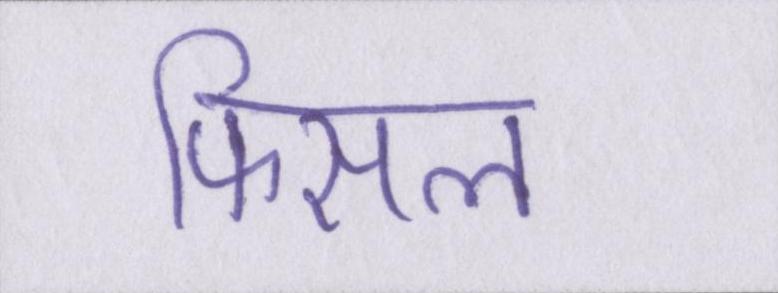 फिसल